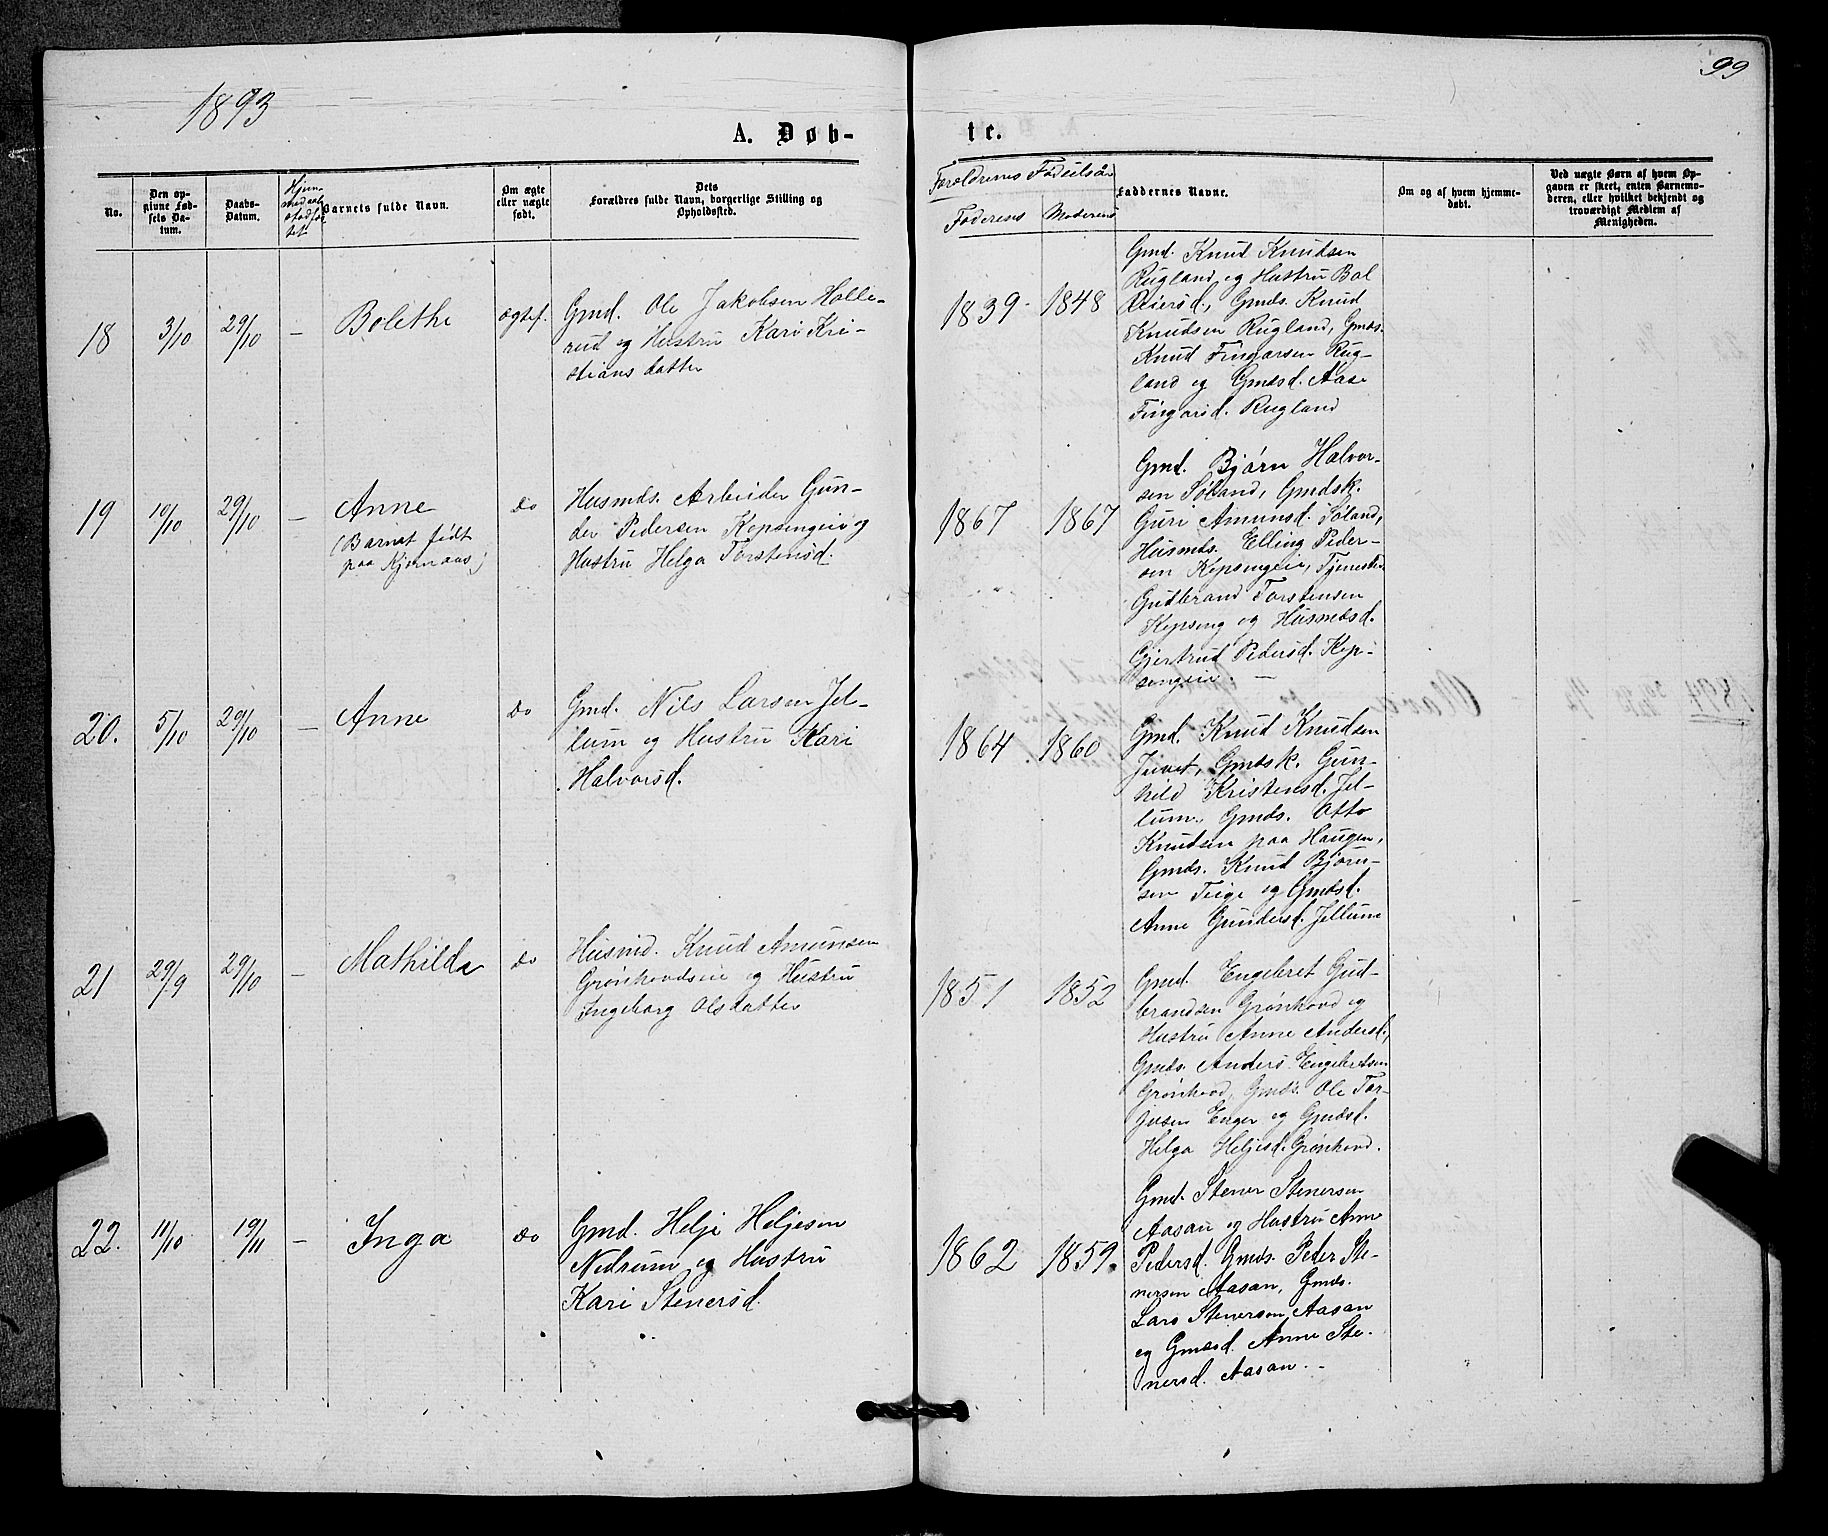 1893
99
A. Døb-
te.
No.
Den op-
givne Fød-
sels Da-
tum.
Daabs-
Datum.
Hjem-
Barnets fulde Navn.
Om ægte
eller uægte
født.
Dets
Forældres fulde Navn, borgerlige Stilling og
Opholdssted.
Forældrenes Fødselsår
Faderens
Moderens
Faddernes Navne.
Om og af hvem hjemme-
døbt.
Ved uægte Børn af hvem Op-
gaven er skeet, enten Barnemo-
deren, eller hvilket bekjendt og
troværdigt Medlem af
Menigheden.
18
3/10
29/10
—
Bolethe
ægtef.
Gmd. Ole Jakobsen Holle-
rud og Hustru Kari Kri-
stiansdatter
1839
1848
Gmd. Knud Knudsen
Rugland og Hustru Bol
Reiersd., Gmds. Knud
Knudsen Rugland, Gmds.
Knud Fingarsen Rug-
land og Gmdsd. Aase
Fingarsd. Rugland
19
10/10
29/10
—
Anne
(Barnet født
paa Kjernaas)
do
Husmds. Arbeider Gun-
der Pedersen Kepsengeie og
Hustru Helga Torstensd.
1867
1867
Gmd. Bjørn Halvor-
sen Søland, Gmdsk.
Guri Amunsd. Søland,
Husmds. Elling Peder-
sen Kepsengeie, Tjeneste
Gudbrand Torstensen
Kepseng og Husmdsd.
Gjertrud Pedersd. Kep-
sengeie. —
20.
5/10
29/10
—
Anne
do
Gmd. Nils Larsen Jel-
lum og Hustru Kari
Halvorsd.
1864
1860
Gmd. Knud Knudsen
Juvet, Gmdsk. Gun-
hild Kristensd. Jel-
lum, Gmds. Otto
Knudsen paa Haugen,
Gmds. Knud Bjørn-
sen Teige og Gmdsd.
Anne Gundersd. Jellum
21
29/9
29/10
—
Mathilde
do
Husmd. Knud Amunsen
Grønhovdseie og Hustru
Ingeborg Olsdatter
1851
1852
Gmd. Engebret Gud-
brandsen Grønhovd og
Hustru Anne Andersd.,
Gmds. Anders Engebretsen
Grønhovd, Gmds. Ole Tor-
jusen Enger og Gmdsd.
Helga Heljesd. Grønhovd.
22.
11/10
19/11
—
Inga
do
Gmd. Helje Heljesen
Nedrum og Hustru
Kari Stenersd.
1862
1859.
Gmd. Stener Stenersen
Aasan og Hustru Anne
Pedersd. Gmds. Peder Ste-
nersen Aasan, Gmds.
Lars Stenersen Aasan
og Gmdsd. Anne Ste-
nersd. Aasan. —